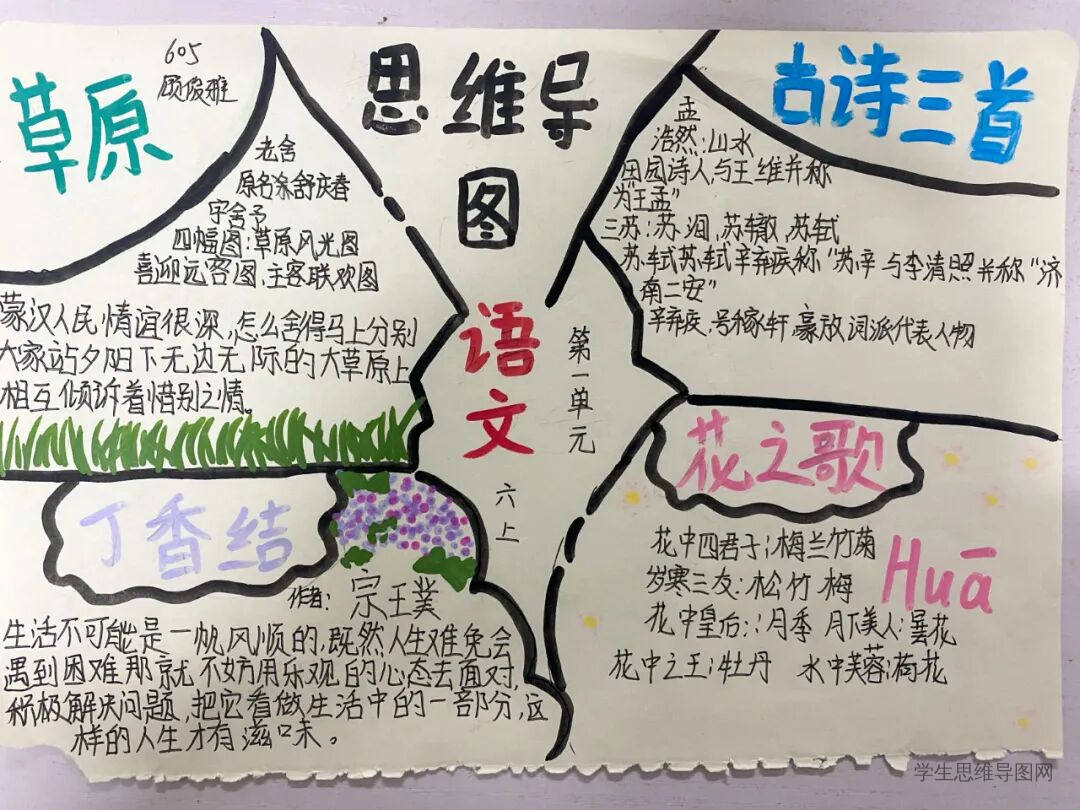 605
顾俊雅
草原
思维导
图
语文
第一单元
六上
老舍
原名涂舒庆春
字舍予
四幅图:草原风光图
喜迎远客图,主客联欢图
蒙汉人民情谊很深,怎么舍得马上分别
大家站夕阳下无边无际的大草原上
相互倾诉着惜别之情。
古诗三首
孟
浩然:山水
田园诗人,与王维并称
为"王孟"
三苏:苏洵,苏辙,苏轼
苏轼苏轼辛弃疾称"苏辛与李清照并称"济
南二安"
辛弃疾,号稼轩,豪放词派代表人物
丁香结
作者:宗王璞
生活不可能是一帆风顺的,既然人生难免会
遇到困难那就不妨用乐观的心态去面对,
积极解决问题,把它看做生活中的一部分,这
样的人生才有滋味。
花之歌
花中四君子:梅兰竹菊
岁寒三友:松竹梅
花中皇后:月季 月下美人:昙花
花中之王:牡丹 水中芙蓉:荷花
Huā
学生思维导图网